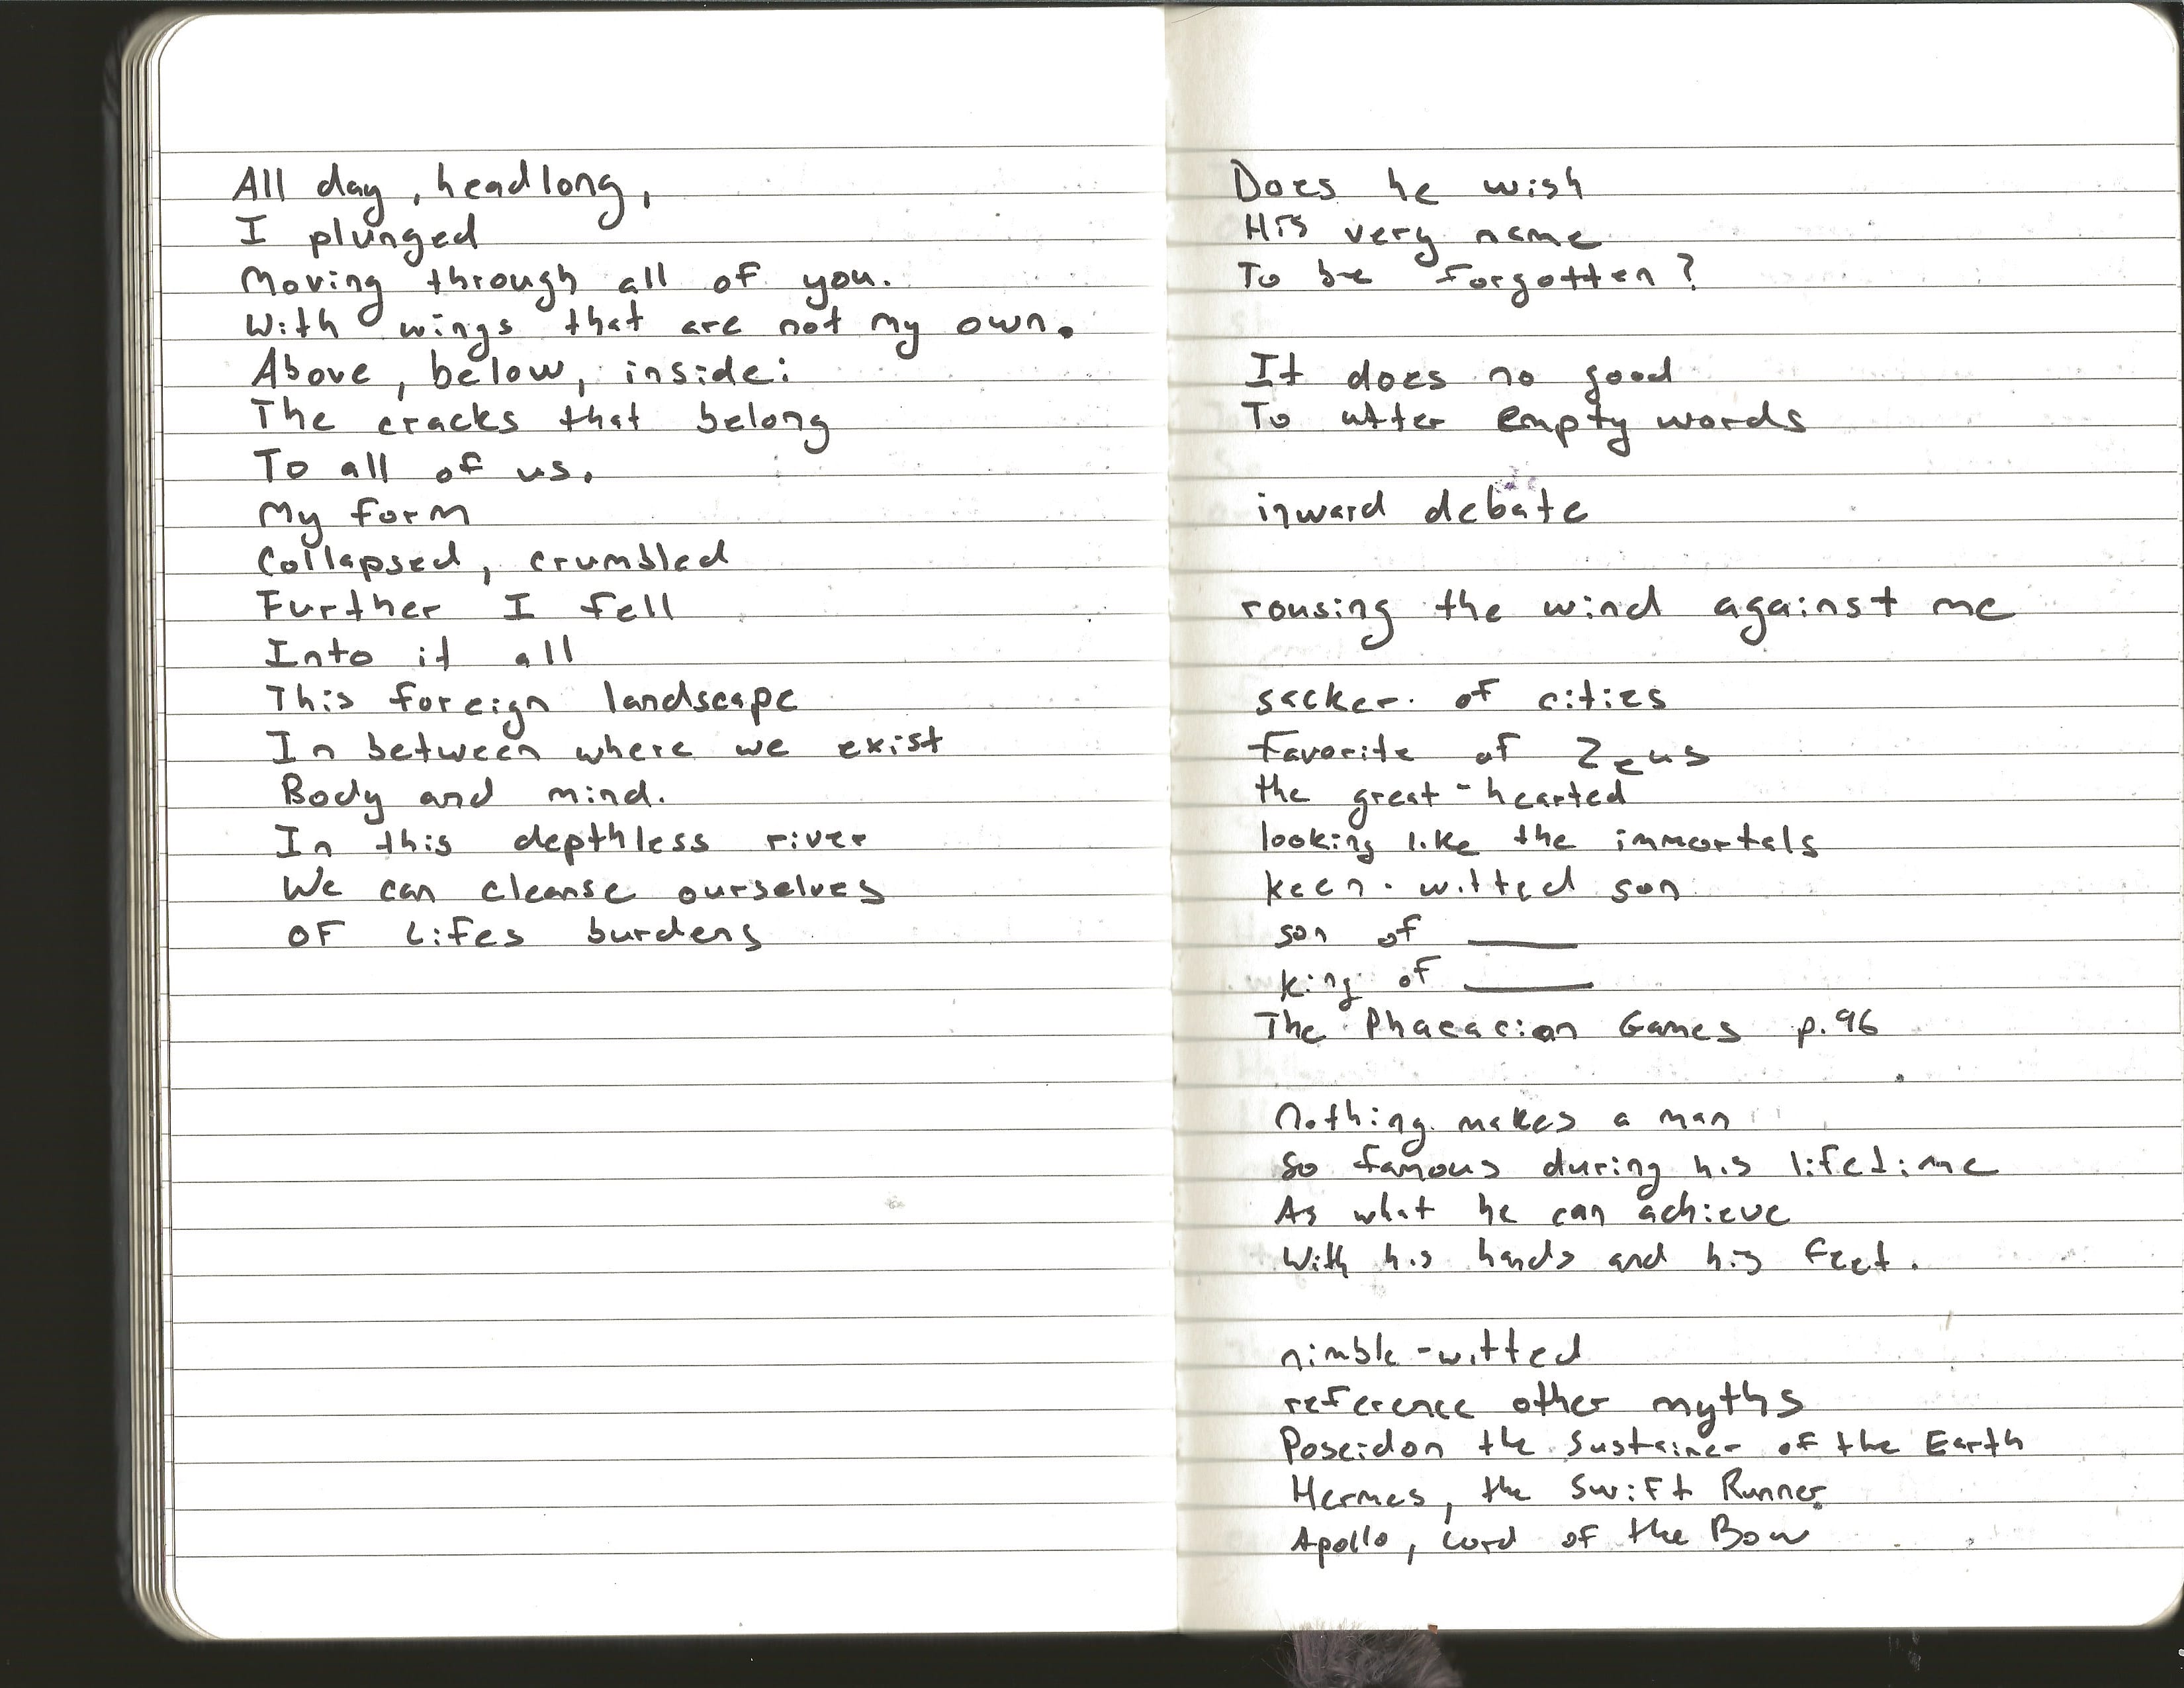 All day, headlong,
I plunged
Moving through all of you.
With wings that are not my own.
Above, below, inside:
The cracks that belong
To all of us.
My form
Collapsed, crumbled
Further I fell
Into it all
This foreign landscape
In between where we exist
Body and mind.
In this depthless river
We can cleanse ourselves
OF Lifes burdens
Does he wish
His very name
To be forgotten?
It does no good
To utter empty words
inward debate
rousing the wind against me
sacker of cities
favorite of Zeus
the great-hearted
looking like the immortals
keen-witted son
son of ______
king of ______
The Phaeacian Games p.96
nothing makes a man
So famous during his lifetime
As what he can achieve
With his hands and his feet.
nimble-witted
reference other myths
Poseidon the Sustainer of the Earth
Hermes, the Swift Runner
Apollo, Lord of the Bow